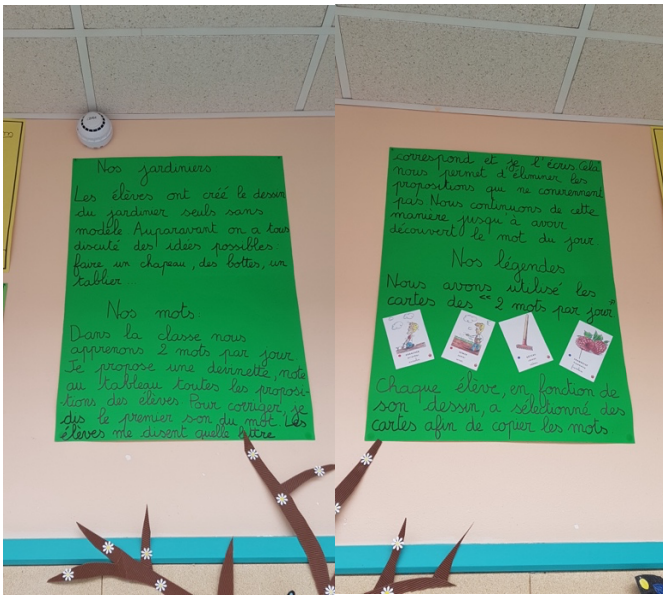 Nos jardiniers
Les élèves ont créé le dessin
du jardinier seuls sans
modèle. Auparavant on a tous
discuté des idées possibles:
faire un chapeau, des bottes, un
tablier...
Nos mots:
Dans la classe nous
apprenons 2 mots par jour
Je propose une devinette, note
au tableau toutes les proposi-
tions des élèves. Pour corriger, je
dis le premier son du mot. Les
élèves me disent quelle lettre
correspond et je l'écris. Celà
nous permet d'éliminer les
propositions qui ne conviennent
pas. Nous continuons de cette
manière jusqu'à avoir
découvert le mot du jour.
Nos légendes
Nous avons utilisé les
cartes des "2 mots par jour"
Chaque élève, en fonction de
son dessin, a sélectionné des
cartes afin de copier les mots